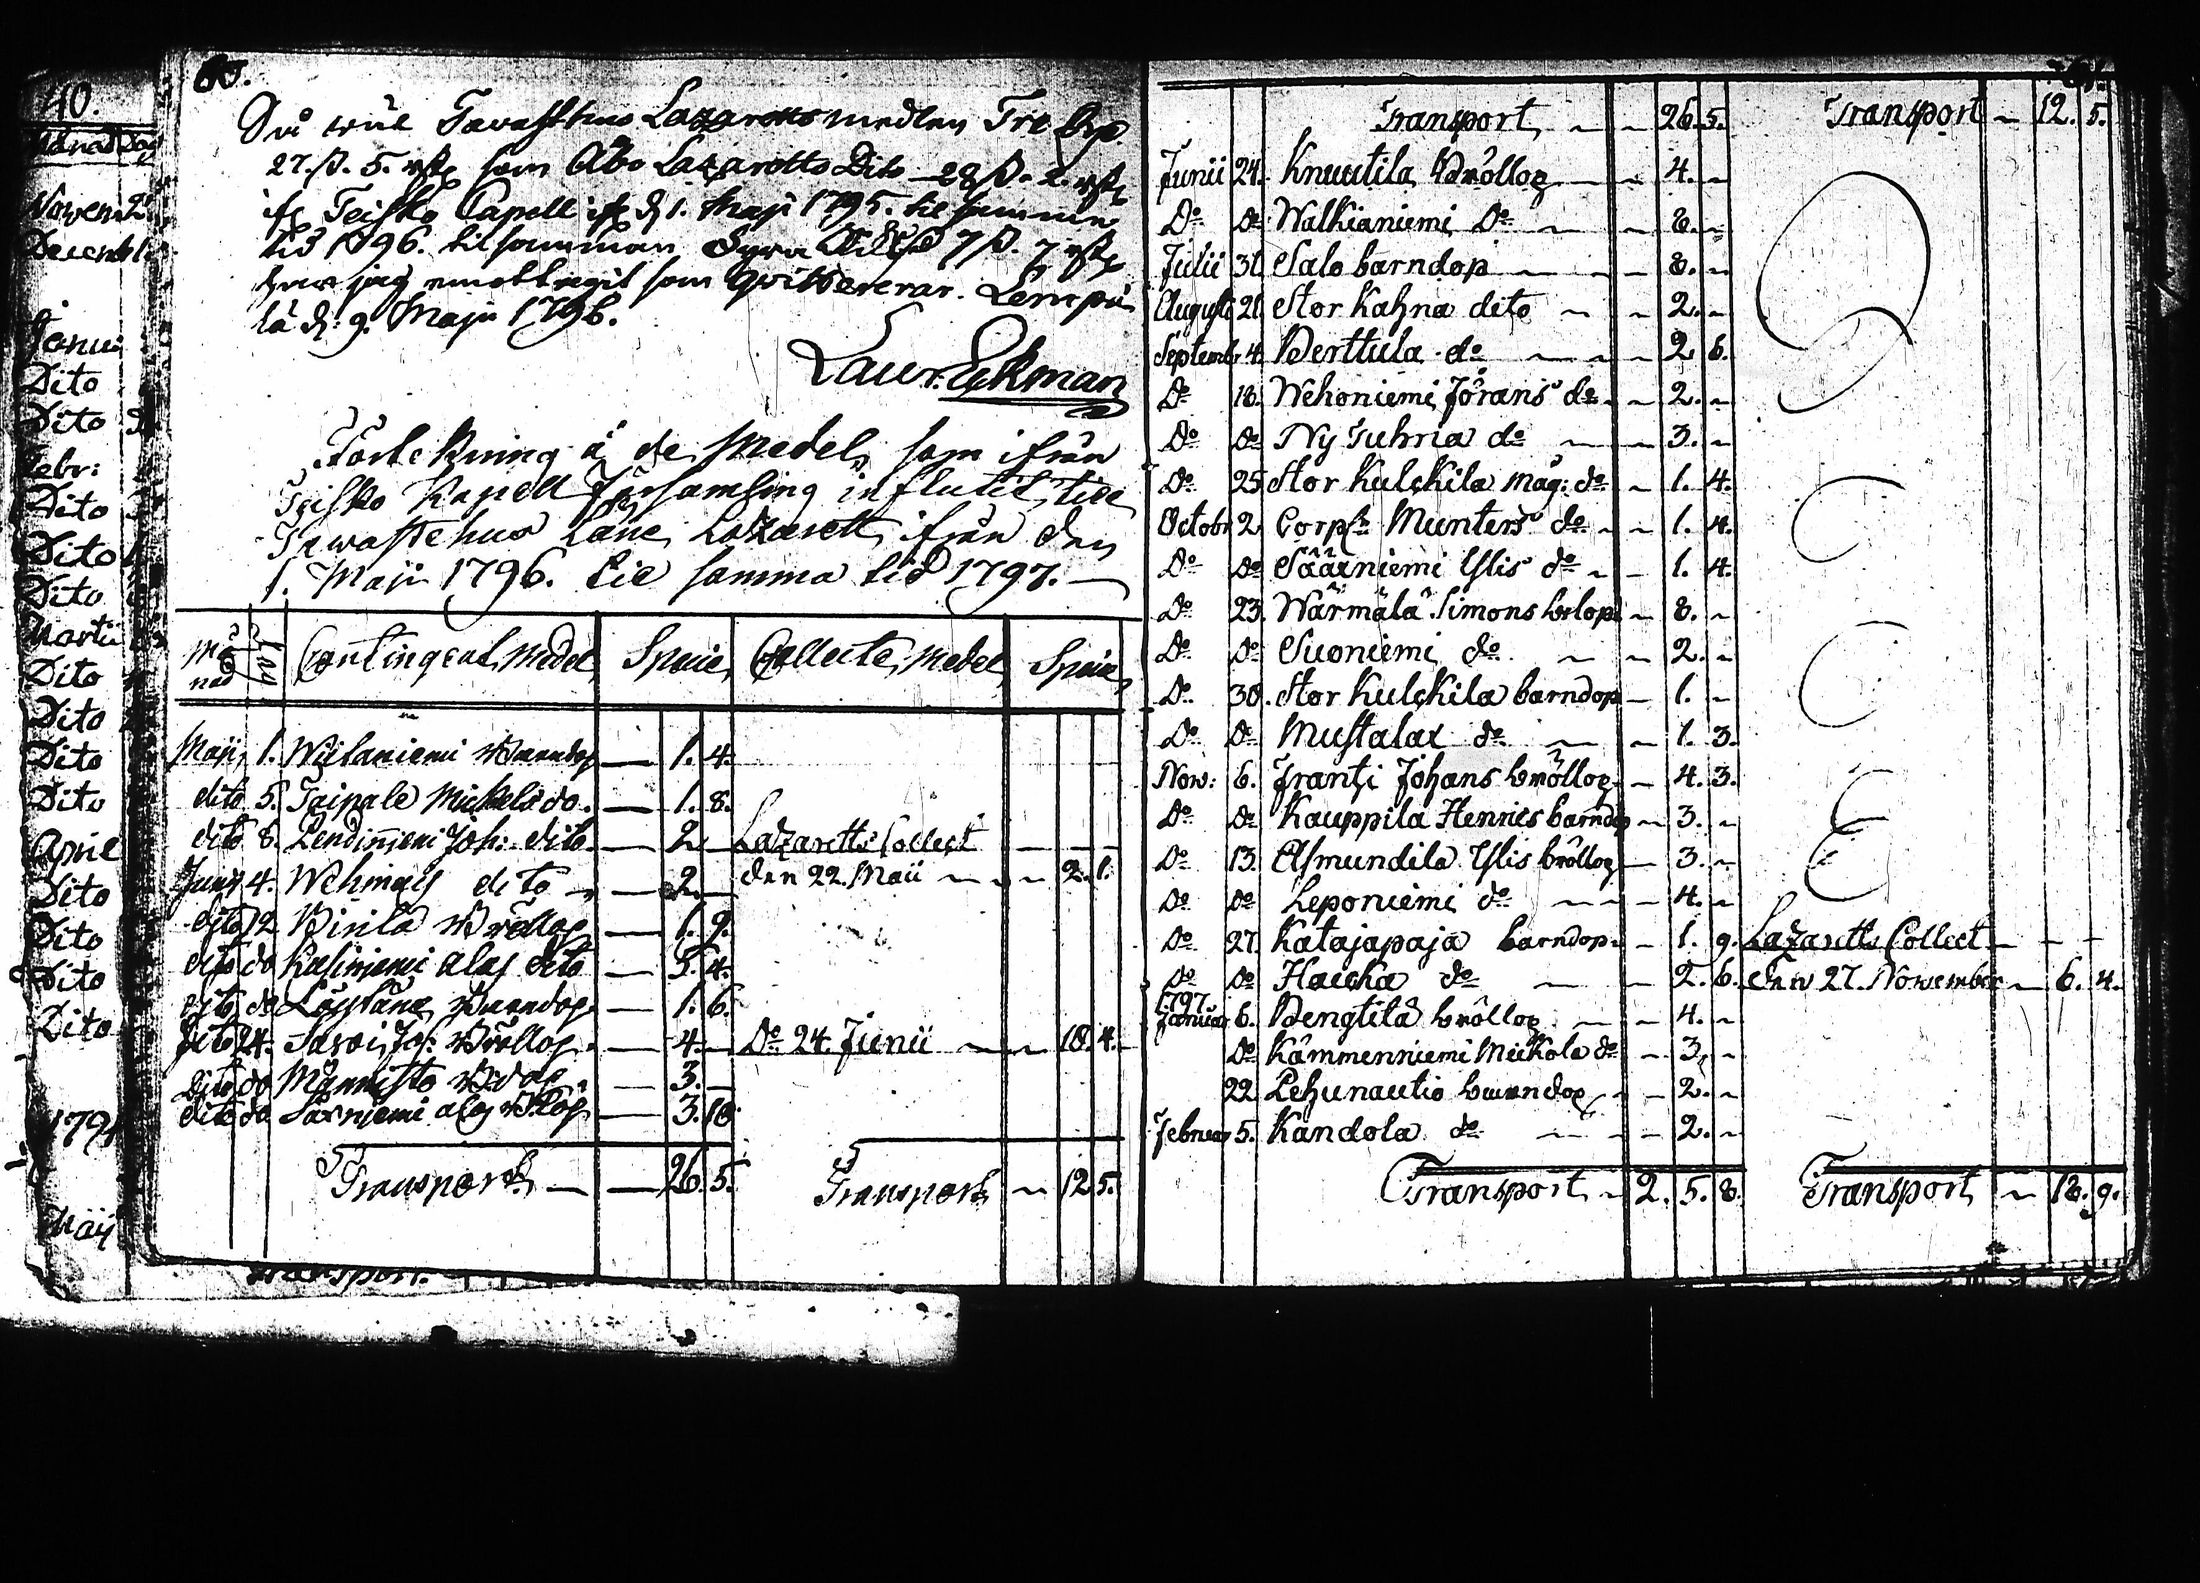 40.
Månad Dag
Novem 2
Decemb 1
Janu:
Dito
Dito
Febr:
Dito
Dito
Dito
Martii
Dito
Dito
Dito
Dito
April
Dito
Dito
Dito
Dito
179
Maij
Transport.
60.
Så wäl Tavasthus Lazaretts medlen Tre
27. ß. 5. rst som Åbo Lazaretts Dito 28 ß. 2. rst
Teisko Capell d 1. Maji 1795. til samma
tid 1796. tilsamman Fyra 7 ß. 7 rst
har jag emottagit som qvitterar. Lempä
lä d: 9. Maji 1796.
Laur. Eckman
Förtekning å de Medel som ifrån
Teisko Kapell Församling influtit til
Tawastehus Läns Lazarett ifrån den
1. Maji 1796. til samma tid 1797. —
Må nad Dag Contingent, Medel Specie Collecte, Medel Specie
Maji 1. Wiitaniemi Barndop — 1. 4.
dito 5. Taipale Mickels do. — 1. 8.
dito 8. Lendiniemi Joh: dito — 2 — Lazaretts Collect — —
Junii 4. Wehmais dito — 2. — den 22. Maii — 2. 1.
dito 12 Bröllop — 1. 9.
dito do Kasiniemi dito — 5. 4.
dito do Barndop — 1. 6.
dito 24. Sarvi Joh: Bröllop — 4. — Do 24. Junii — 10. 4.
Dito do Männistö — 3. —
dito do Särniemi — 3. 10.
Transport — 26. 5. Transport — 12 5.
61.
Transport — 26. 5. Transport — 12. 5.
Junii 24. Knuutila Bröllop — 4. —
Do Do Walkianiemi Do — 8. —
Julii 31. Salo barndop — 8. —
Augusti 21. Stor Kahna dito — 2. —
Septemb 4. Berttula do — 2 6.
Do 18. Wehoniemi Jörans do — 2. —
Do Do Ny Tuhria do — 3. —
Do 25 Stor Kulckila Mag: do — 1. 4.
Octobr 2 Corpl: Munters do — 1. 4.
Do Do Säärniemi Ylis do — 1. 4.
Do 23. Wärmälä Simons — 8. —
Do Do Suoniemi do — 2. —
Do 30. Stor Kulckila barndop — 1. —
Do Do Mustalax do — 1. 3.
Nov: 6. Frantsi Johans bröllop — 4. 3.
Do Do Kauppila Hennies barndop — 3. —
Do 13. Asmundila Ylis bröllop — 3. —
Do Do Leponiemi do — 4. —
Do 27. Katajapaja barndop — 1. 9. Lazaretts Collect — —
Do Do Haicka do — 2. 6. den 27. November — 6. 4.
1797
Januar 6. Bengtilä bröllop — 4. —
Do Kämmenniemi Mickola do — 3. —
22 Lehunautio barndop — 2. —
Februar 5. Kandola do — 2. —
Transport — 2. 5. 8. Transport — 18. 9.